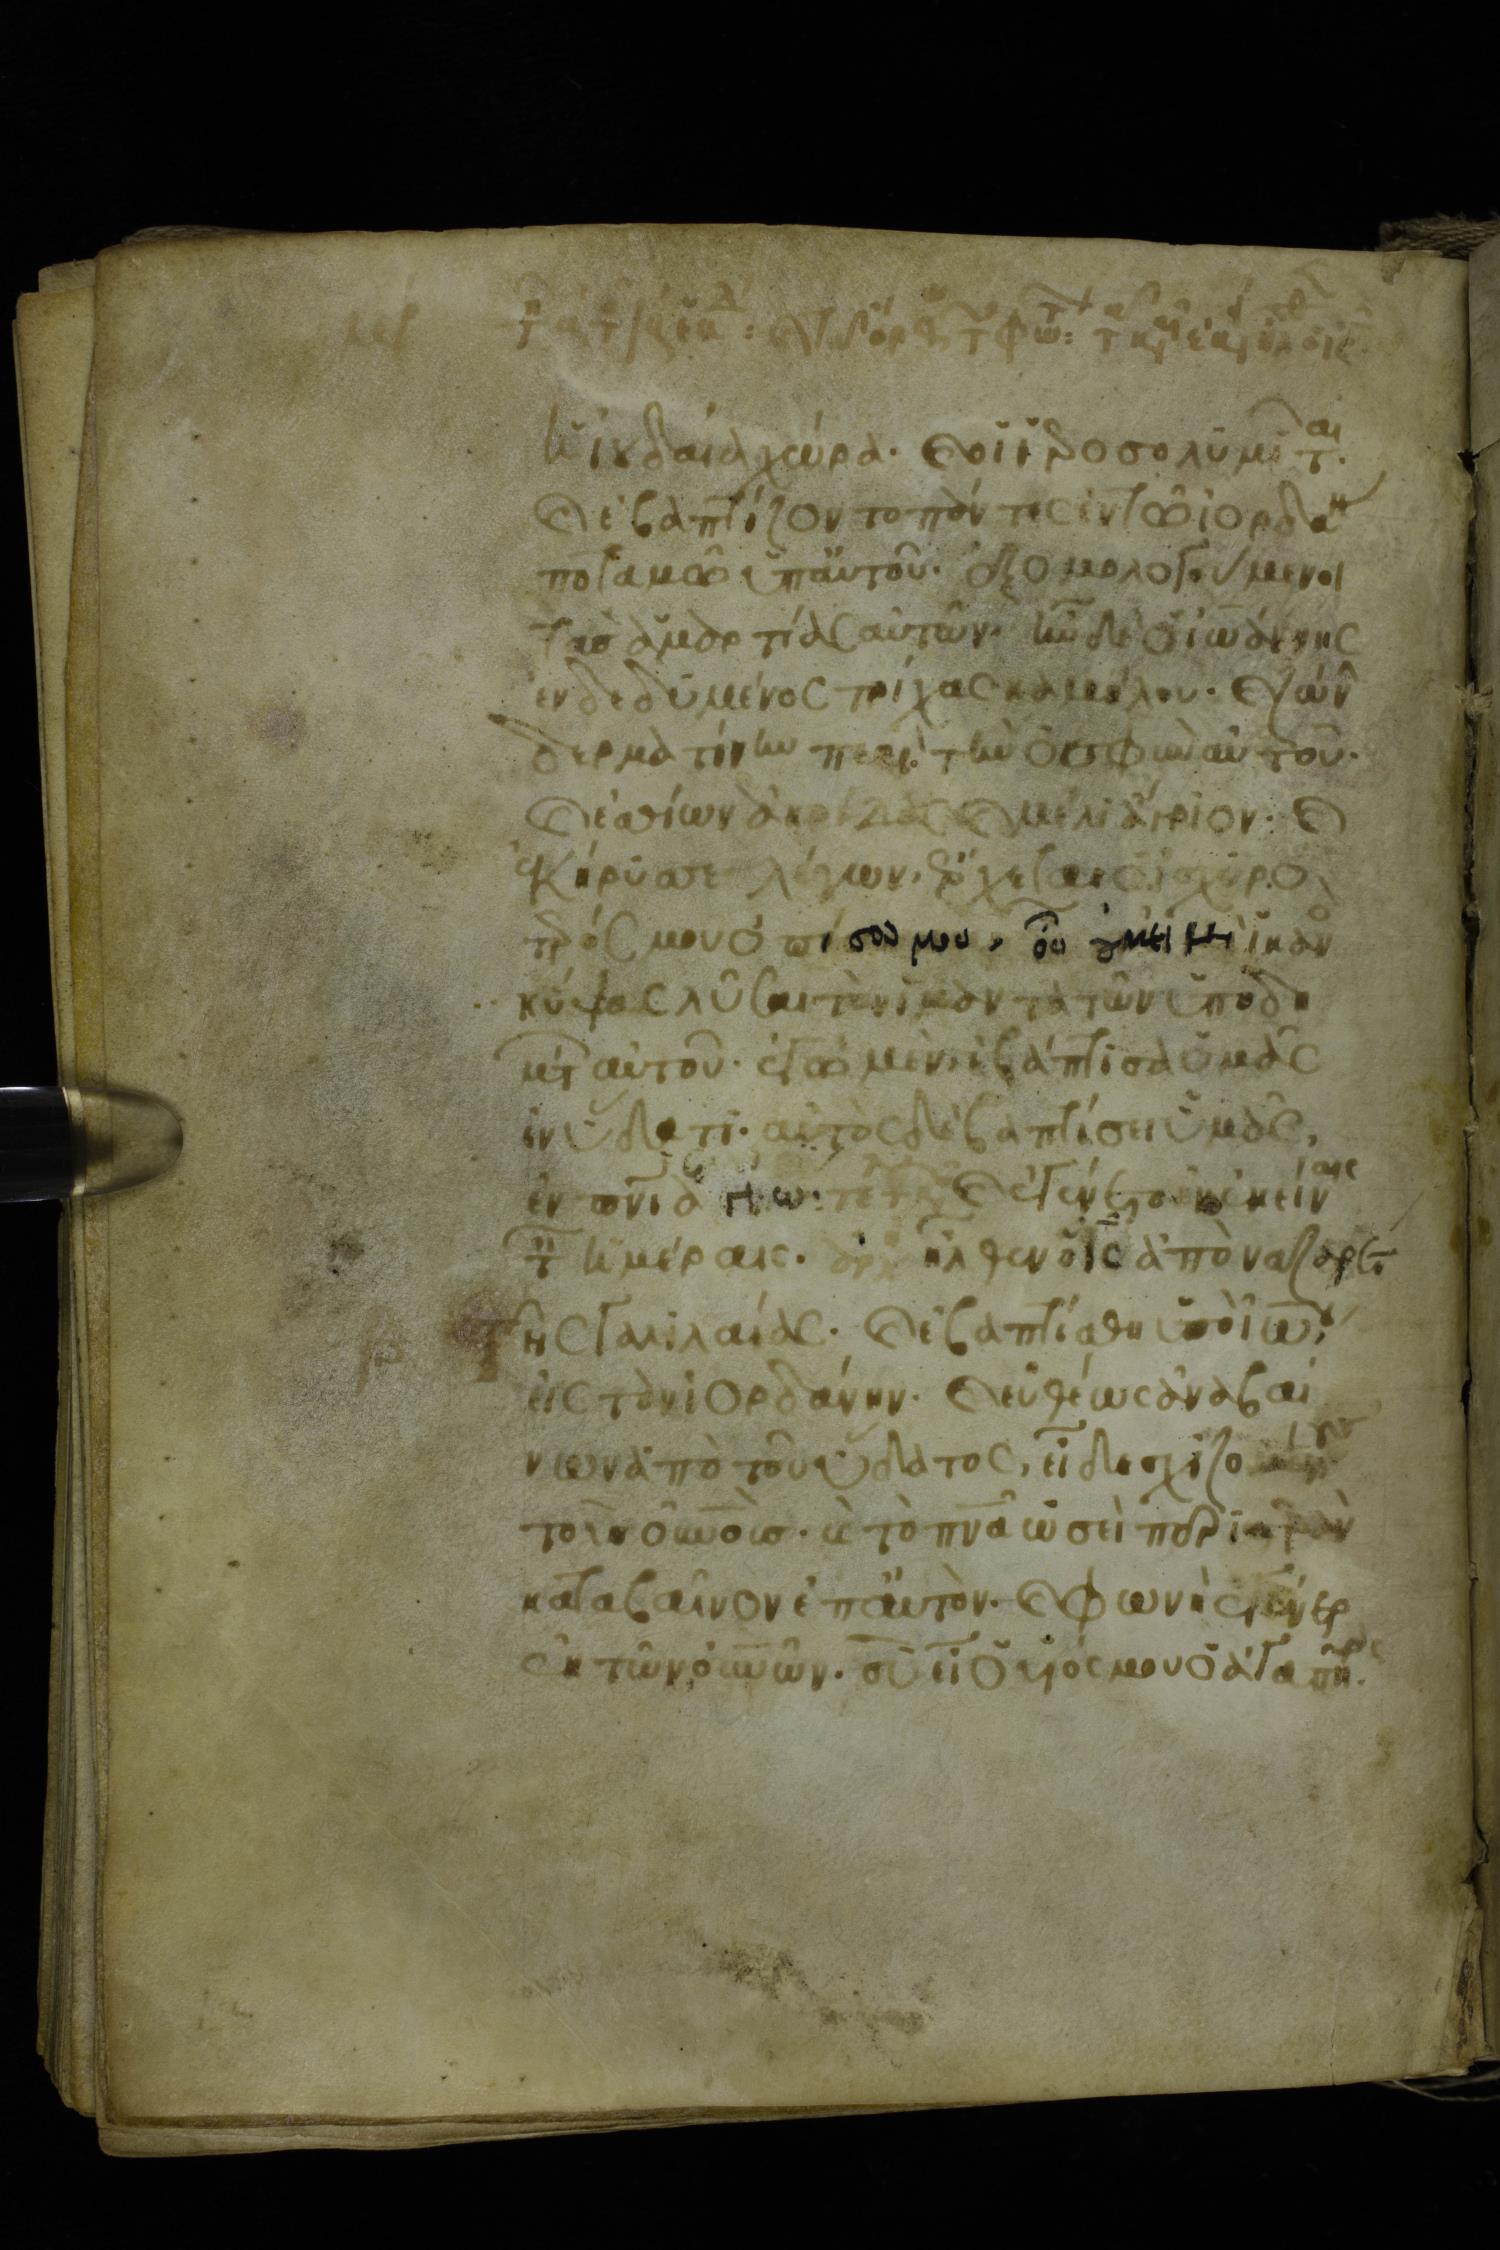 ἡ ἰουδαία χώρα. καὶ οἱ ἱεροσολυμῖται.
καὶ ἐβαπτίζοντο πάντες ἐν τῶ ἰορδάνη
ποταμῶ ὑπ' αὐτοῦ. ἐξομολογούμενοι
τὰς ἁμαρτίας αὐτῶν. ἦν δὲ ὁ ἰωάννης
ἐνδεδυμένος τρίχας καμήλου. καὶ ζώνην
δερματίνην περὶ τὴν ὀσφὺν αὐτοῦ.
καὶ ἐσθίων ἀκρίδας καὶ μέλι ἄγριον. καὶ
ἐκήρυσσε λέγων. ἔρχεται ὁ ἰσχυρό
τερός μου ὀπίσω μου, οὗ οὐκ εἰμὶ ἱκανὸς
κύψας λῦσαι τὸν ἱμάντα τῶν ὑποδη
μάτων αὐτοῦ. ἐγὼ μὲν ἐβάπτισα ὑμᾶς
ἐν ὕδατι. αὐτὸς δὲ βαπτίσει ὑμᾶς,
ἐν πνι ἁγίω. καὶ ἐγένετο ἐν ἐκείναις
ταῖς ἡμέραις. ἦλθεν ὁ ις ἀπὸ ναζαρὲτ
τῆς γαλιλαίας. καὶ ἐβαπτίσθη ὑπὸ ἰω
εἰς τὸν ἰορδάνην. καὶ εὐθέως ἀναβαί
νων ἀπὸ τοῦ ὕδατος, εἶδε σχιζομένους
τοὺς οὐνοὺς. καὶ τὸ πνα ὡσεὶ περιστερὰν
καταβαῖνον ἐπ' αὐτὸν. καὶ φωνὴ ἐγένετο
ἐκ τῶν οὐνῶν. σὺ εἶ ὁ υἱός μου ὁ ἀγαπητὸς.